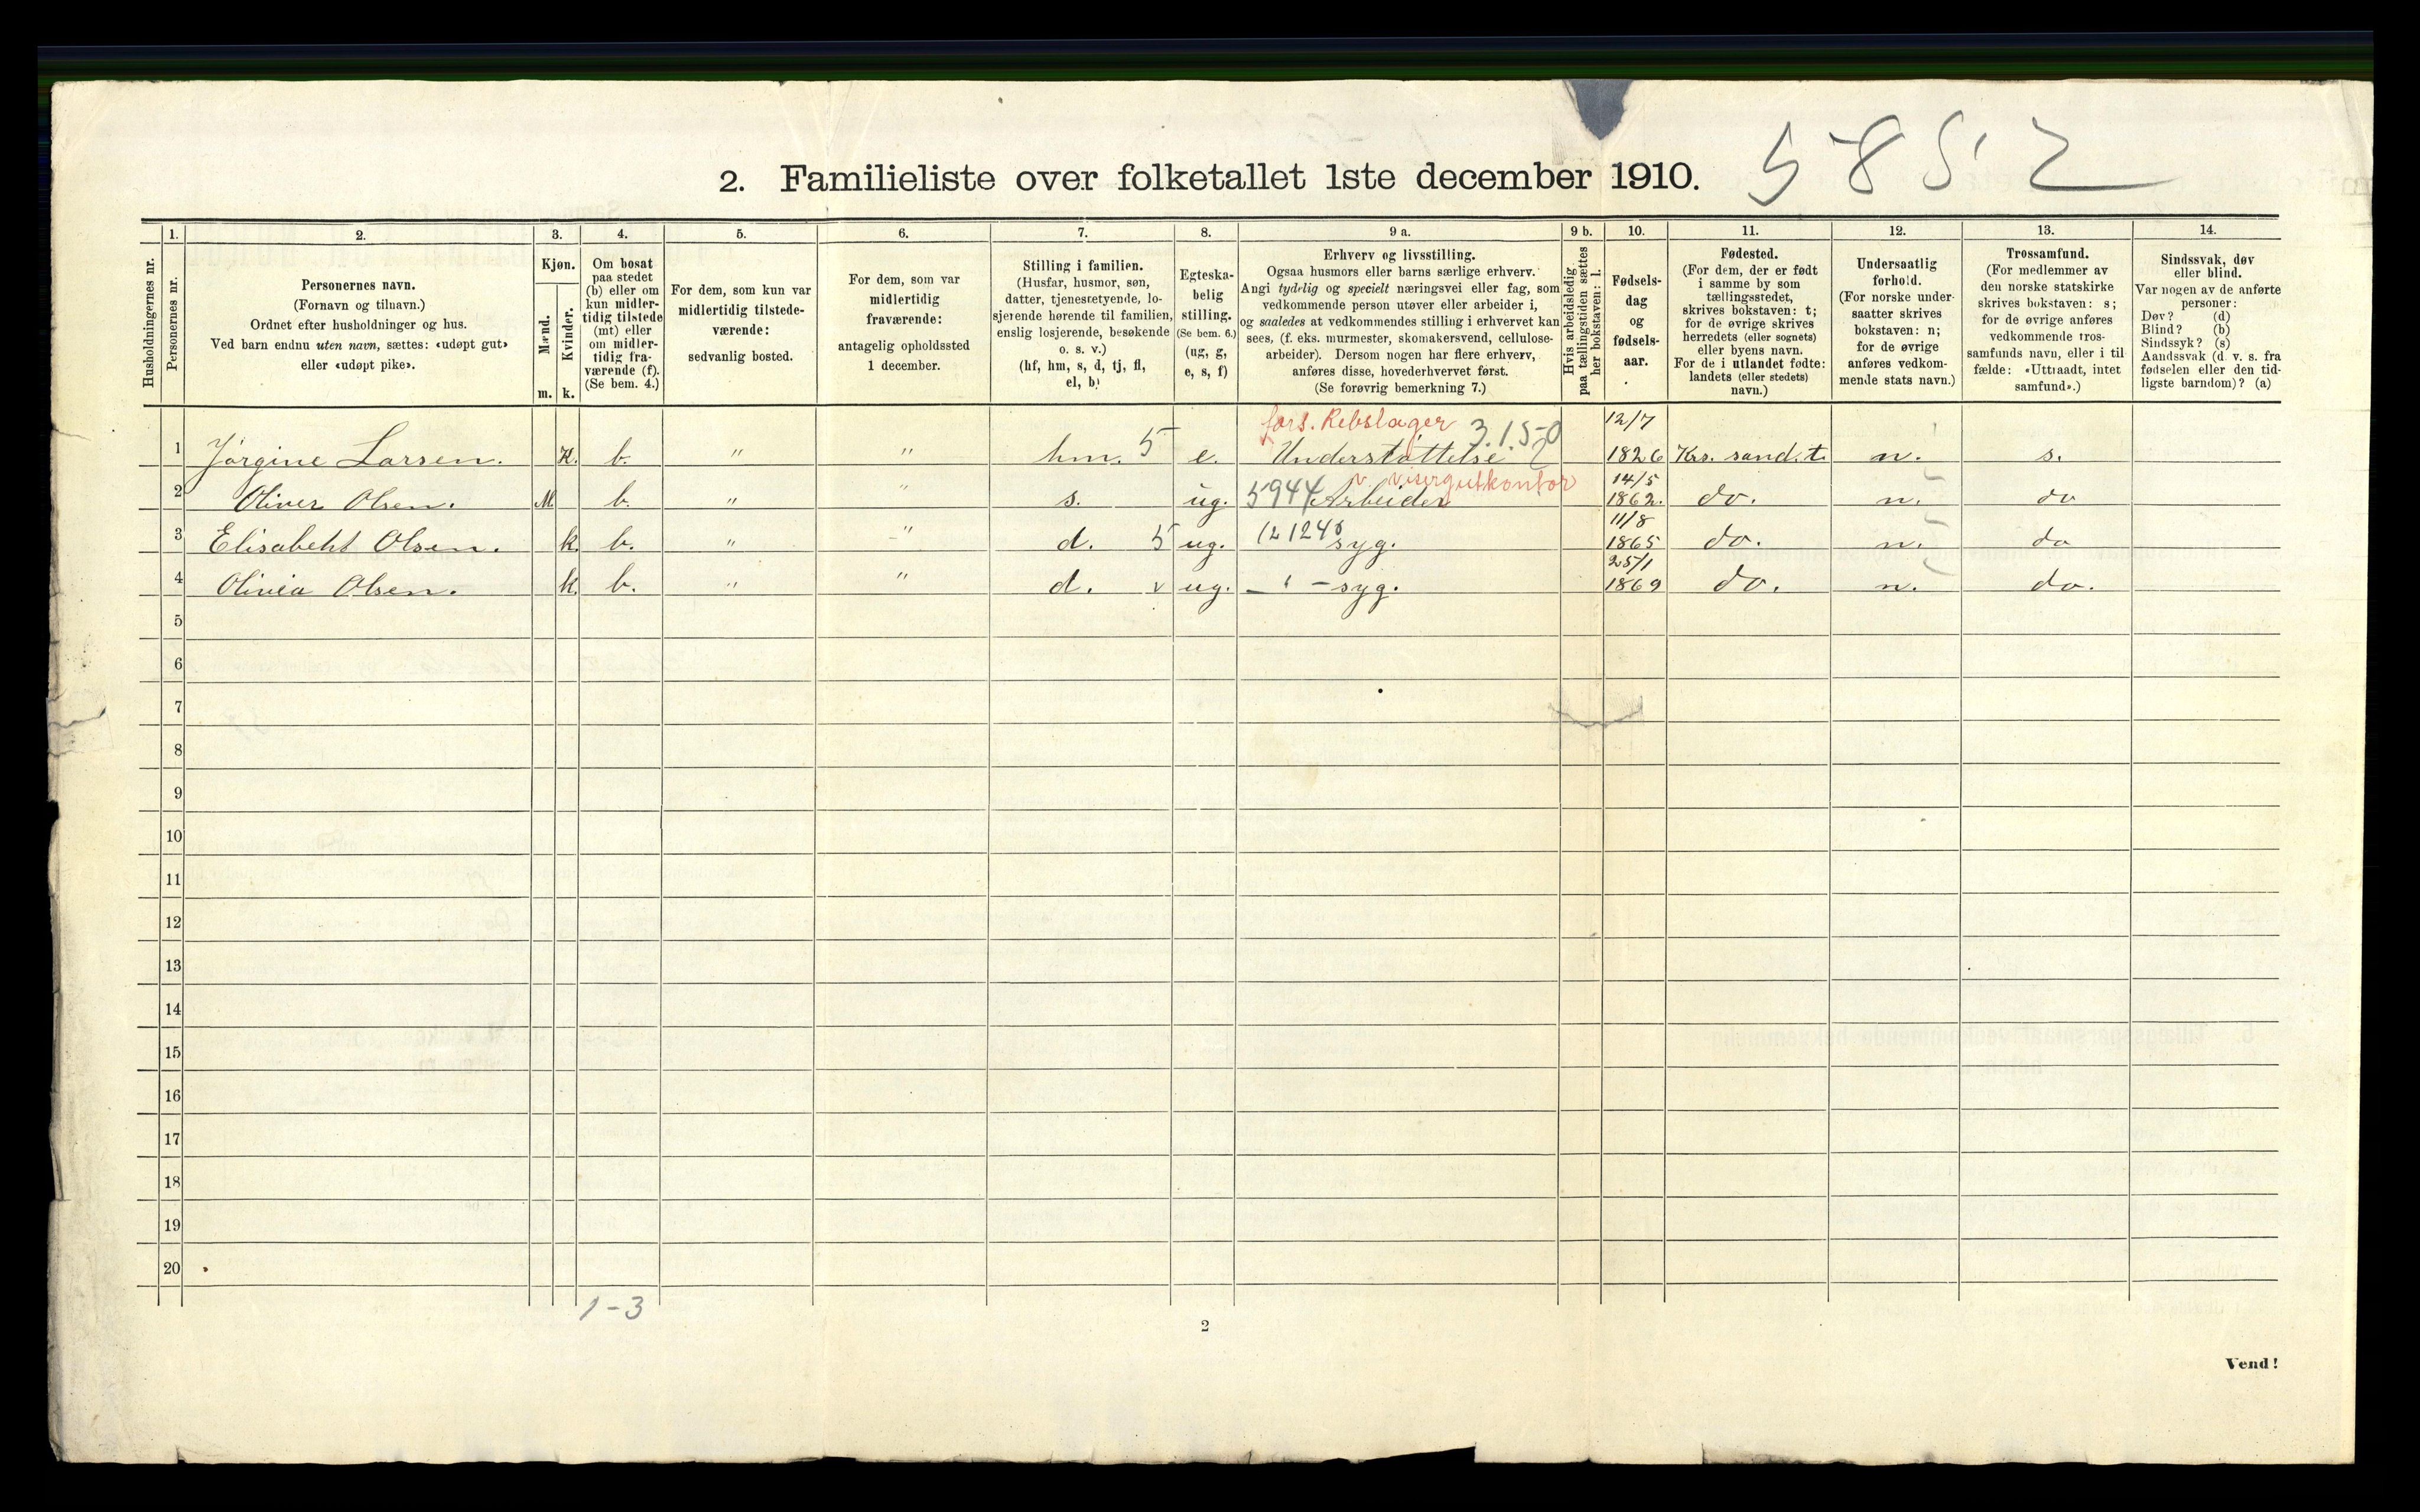 2. Familieliste over folketallet 1ste december 1910. 5852
1. 2. 3. 4. 5. 6. 7. 8. 9 a. 9 b. 10. 11. 12. 13. 14.
Husholdningernes nr.
Personernes nr.
Personernes navn.
(Fornavn og tilnavn.)
Ordnet efter husholdninger og hus.
Ved barn endnu uten navn, sættes: «udøpt gut»
eller «udøpt pike».
Kjøn.
Mænd.
Kvinder.
m. k.
Om bosat
paa stedet
(b) eller om
kun midler-
tidig tilstede
(mt) eller
om midler-
tidig fra-
værende (f).
(Se bem. 4.)
For dem, som kun var
midlertidig tilstede-
værende:
sedvanlig bosted.
For dem, som var
midlertidig
fraværende:
antagelig opholdssted
1 december.
Stilling i familien.
(Husfar, husmor, søn,
datter, tjenestetyende, lo-
sjerende hørende til familien,
enslig losjerende, besøkende
o. s. v.)
(hf, hm, s, d, tj, fl,
el, b)
Egteska-
belig
stilling.
(Se bem. 6.)
(ug, g,
e, s, f)
Erhverv og livsstilling.
Ogsaa husmors eller barns særlige erhverv.
Angi tydelig og specielt næringsvei eller fag, som
vedkommende person utøver eller arbeider i,
og saaledes at vedkommendes stilling i erhvervet kan
sees, (f. eks. murmester, skomakersvend, cellulose-
arbeider). Dersom nogen har flere erhverv,
anføres disse, hovederhvervet først.
(Se forøvrig bemerkning 7.)
Hvis arbeidsledig
paa tællingstiden sættes
her bokstaven: l.
Fødsels-
dag
og
fødsels-
aar.
Fødested.
(For dem, der er født
i samme by som
tællingsstedet,
skrives bokstaven: t;
for de øvrige skrives
herredets (eller sognets)
eller byens navn.
For de i utlandet fødte:
landets (eller stedets)
navn.)
Undersaatlig
forhold.
(For norske under-
saatter skrives
bokstaven: n;
for de øvrige
anføres vedkom-
mende stats navn.)
Trossamfund.
(For medlemmer av
den norske statskirke
skrives bokstaven: s;
for de øvrige anføres
vedkommende tros-
samfunds navn, eller i til
fælde: «Uttraadt, intet
samfund».)
Sindssvak, døv
eller blind.
Var nogen av de anførte
personer:
Døv? (d)
Blind? (b)
Sindssyk? (s)
Aandssvak (d. v. s. fra
fødselen eller den tid-
ligste barndom)? (a)
fors. Rebslager 3.1.50 12/7
1 Jørgine Larsen. K. b. " " hm. 5 e. Understøttelse 1826 Krs. sand. t. n. s.
v. visergutkontor 14/5
2 Oliver Olsen. M. b. " " s. ug. 5944 Arbeider 1862. do. n. do
11/8
3 Elisabeht Olsen. k. b. " " d. 5 ug. syg. 1865 do. n. do
25/1
4 Olivia Olsen. k. b. " " d. v ug. — " — syg. 1869 do. n. do.
5
6
7
8
9
10
11
12
13
14
15
16
17
18
19
20
1-3
2
Vend!